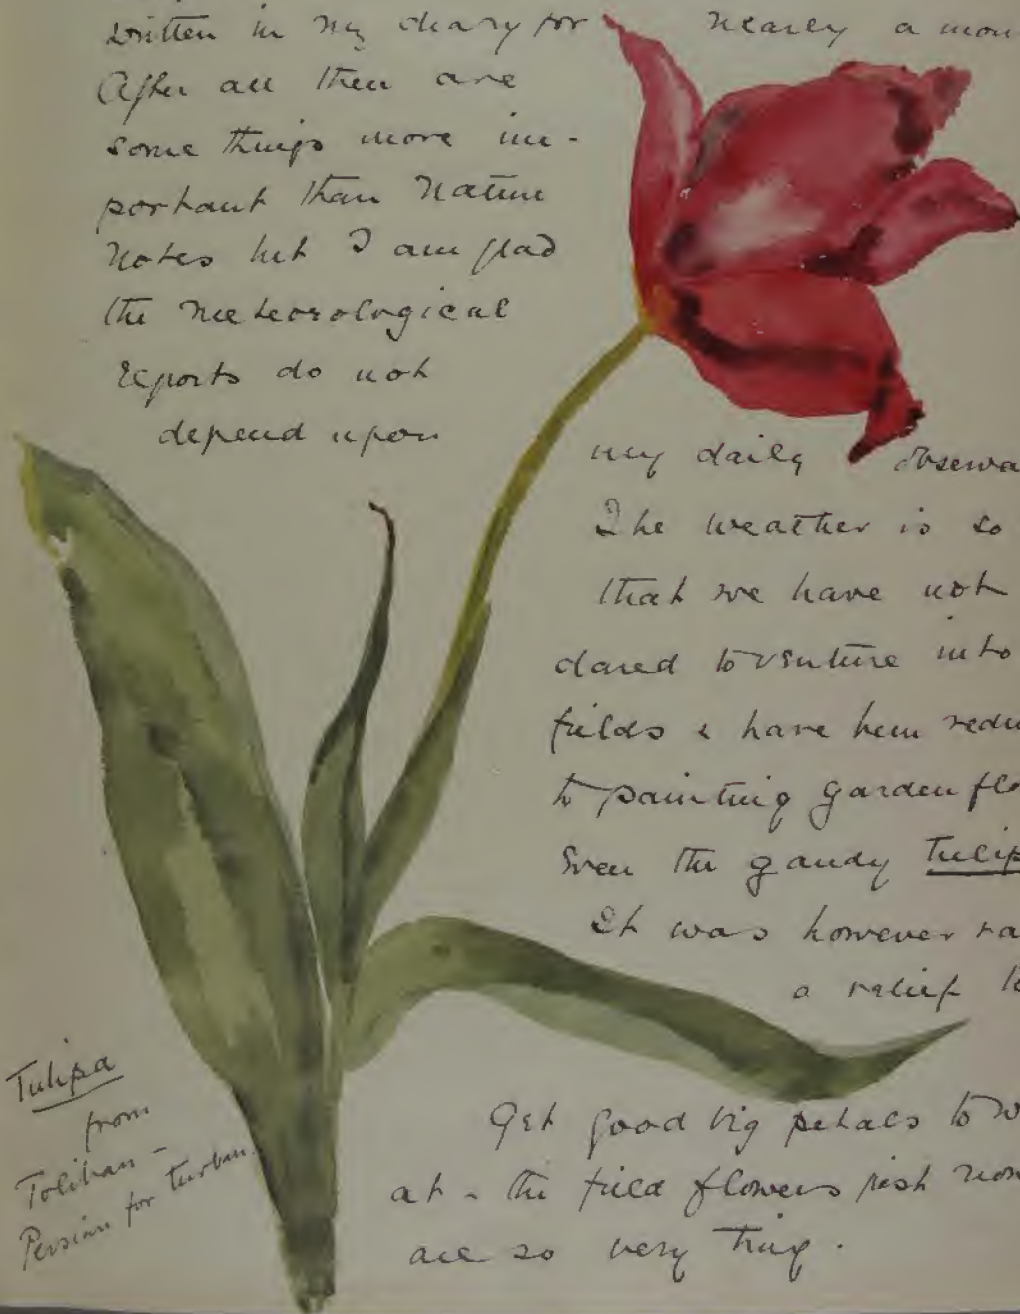 written in my diary for nearly a mon
After all there are
some things more im-
portant than Nature
Notes but I am glad
the meteorological
reports do not
depend upon
my daily observa
The weather is so
that we have not
dared to venture into
fields & have been redu
to painting garden flo
even the gaudy Tulip
It was however ra
a relief to
Get good big petals to w
at - the field flowers just now
are so very tiny.
Tulipa
from
Toliban -
Persian for turban.